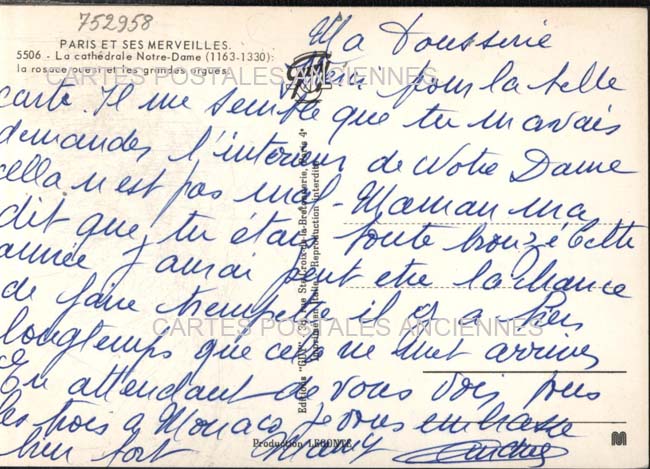 752958
PARIS ET SES MERVEILLES.
5506 - La cathédrale Notre-Dame (1163-1330):
la rosace ouest et les grandes orgues.
CARTES POSTALES ANCIENNES
Ma Poussine
Merci pour la belle
carte. Il me semble que tu mavais
demandes l'interieur de Notre Dame
cella n est pas mal - Maman ma
dit que tu étais toute bronzé Cette
année j aurai peut etre la chance
de faire trempette il y a bien
longtemps que cela ne met arrives
En attendant de vous voir tous
les trois a Monaco je vous embrasse
bien fort
Editions "GUY", 36, rue Ste-Croix-de-la-Bretonnerie, Paris 4e
Imprimé en Italie - Reproduction interdite
CARTES POSTALES ANCIENNES
Production LECONTE